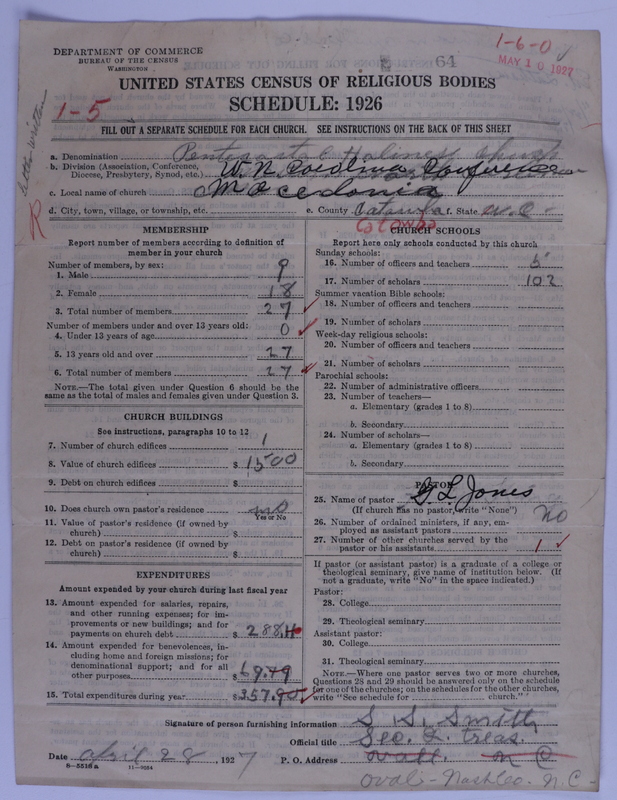 DEPARTMENT OF COMMERCE
BUREAU OF THE CENSUS
WASHINGTON
64
1-6-0
MAY 10 1927
UNITED STATES CENSUS OF RELIGIOUS BODIES
1-5
SCHEDULE: 1926
FILL OUT A SEPARATE SCHEDULE FOR EACH CHURCH. SEE INSTRUCTIONS ON THE BACK OF THIS SHEET
a. Denomination Pentecostal Holiness Church
b. Division (Association, Conference, Diocese, Presbytery, Synod, etc.) W. N. Carolina Conference
c. Local name of church Macedonia
d. City, town, village, or township, etc.
e. County Catawba f. State N.C.
Catawba
MEMBERSHIP
Report number of members according to definition of
member in your church
Number of members, by sex:
1. Male 9
2. Female 18
3. Total number of members 27
Number of members under and over 13 years old:
4. Under 13 years of age 0
5. 13 years old and over 27
6. Total number of members 27
NOTE.—The total given under Question 6 should be
same as the total of males and females given under Question 3.
CHURCH BUILDINGS
See instructions, paragraphs 10 to 12
7. Number of church edifices 1
8. Value of church edifices $ 1500
9. Debt on church edifices $
10. Does church own pastor's residence no
Yes or No
11. Value of pastor's residence (if owned by
church) $
12. Debt on pastor's residence (if owned by
church) $
EXPENDITURES
Amount expended by church during last fiscal year
13. Amount expended for salaries, repairs,
and other running expenses; for im-
provements or new buildings; and for
payments on church debt $ 288.
14. Amount expended for benevolences, in-
cluding home and foreign missions; for
denominational support; and for all
other purposes $ 69.49
15. Total expenditures during year $ 357.90
CHURCH SCHOOLS
Report here only schools conducted by this church
Sunday schools:
16. Number of officers and teachers 5
17. Number of scholars 102
Summer vacation Bible schools:
18. Number of officers and teachers
19. Number of scholars
Week-day religious schools:
20. Number of officers and teachers
21. Number of scholars
Parochial schools:
22. Number of administrative officers
23. Number of teachers—
a. Elementary (grades 1 to 8)
b. Secondary
24. Number of scholars—
a. Elementary (grades 1 to 8)
b. Secondary
PASTOR
25. Name of pastor G L Jones
(If church has no pastor, write "None")
26. Number of ordained ministers, if any, em-
ployed as assistant pastors no
27. Number of other churches served by the
pastor or his assistants 1
If pastor (or assistant pastor) is a graduate of a college or
theological seminary, give name of institution below. (If
not a graduate, write "No" in the space indicated.)
Pastor:
28. College
29. Theological seminary
Assistant pastor:
30. College
31. Theological seminary
NOTE.—Where one pastor serves two or more churches,
Questions 28 and 29 should be answered only on the schedule
for one of the churches; on the schedules for the other churches,
write "See schedule for church."
Signature of person furnishing information S. S. Smith
Official title Sec. & Treas.
Date April 28 1927
P. O. Address N C
8-5518 a 11-9084
Oval - Nash Co. N.C.